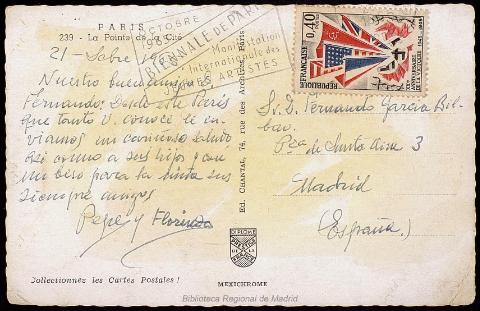 PARIS
239 - La Pointe de la Cité
OCTOBRE
1965
BIENNALE DE PARIS
Manifestation
Internationale des
JEUNES ARTISTES
REPUBLIQUE FRANÇAISE
0,40
POSTES
21 - Sbre/
Nuestro buen amigo
Fernando: Desde este París
que tanto V. conoce le en-
viamos un cariñoso saludo
asi como a sus hijos y con
un beso para la
siempre amigos
Pepe y Florinda
Ed. CHANTAL, 74, rue des Archives Paris
Sr. D. Fernando García Bil-
bao.
Pza de Santa Ana 3
Madrid
(España.)
Collectionnez les Cartes Postales !
MEXICHROME
Biblioteca Regional de Madrid